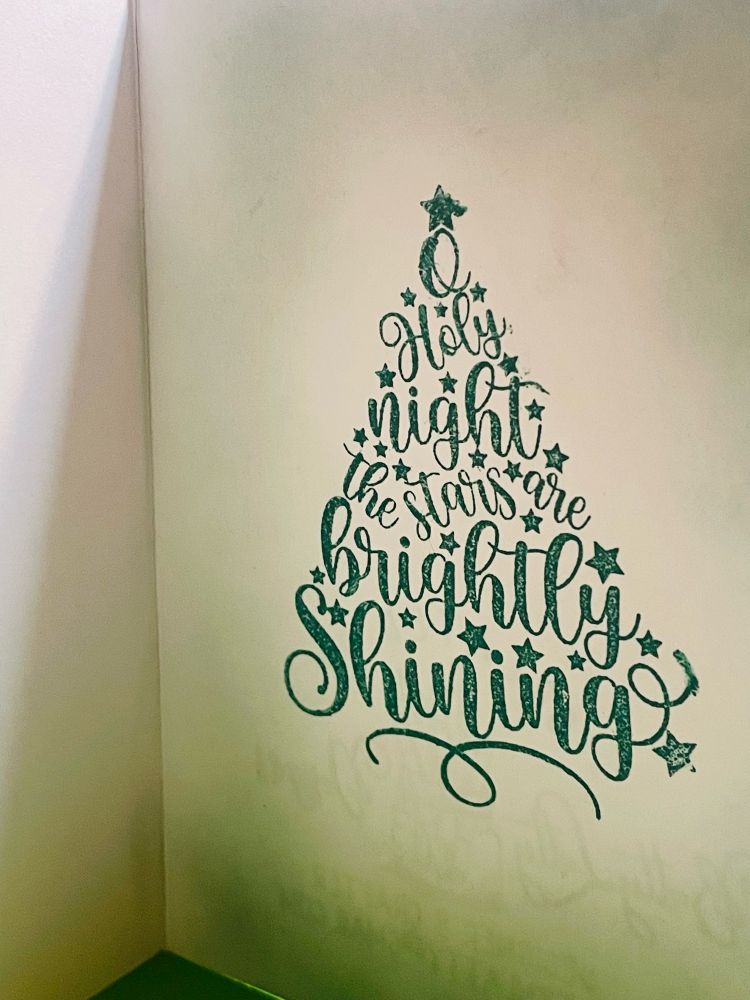 O
Holy
night
the stars are
brightly
Shining